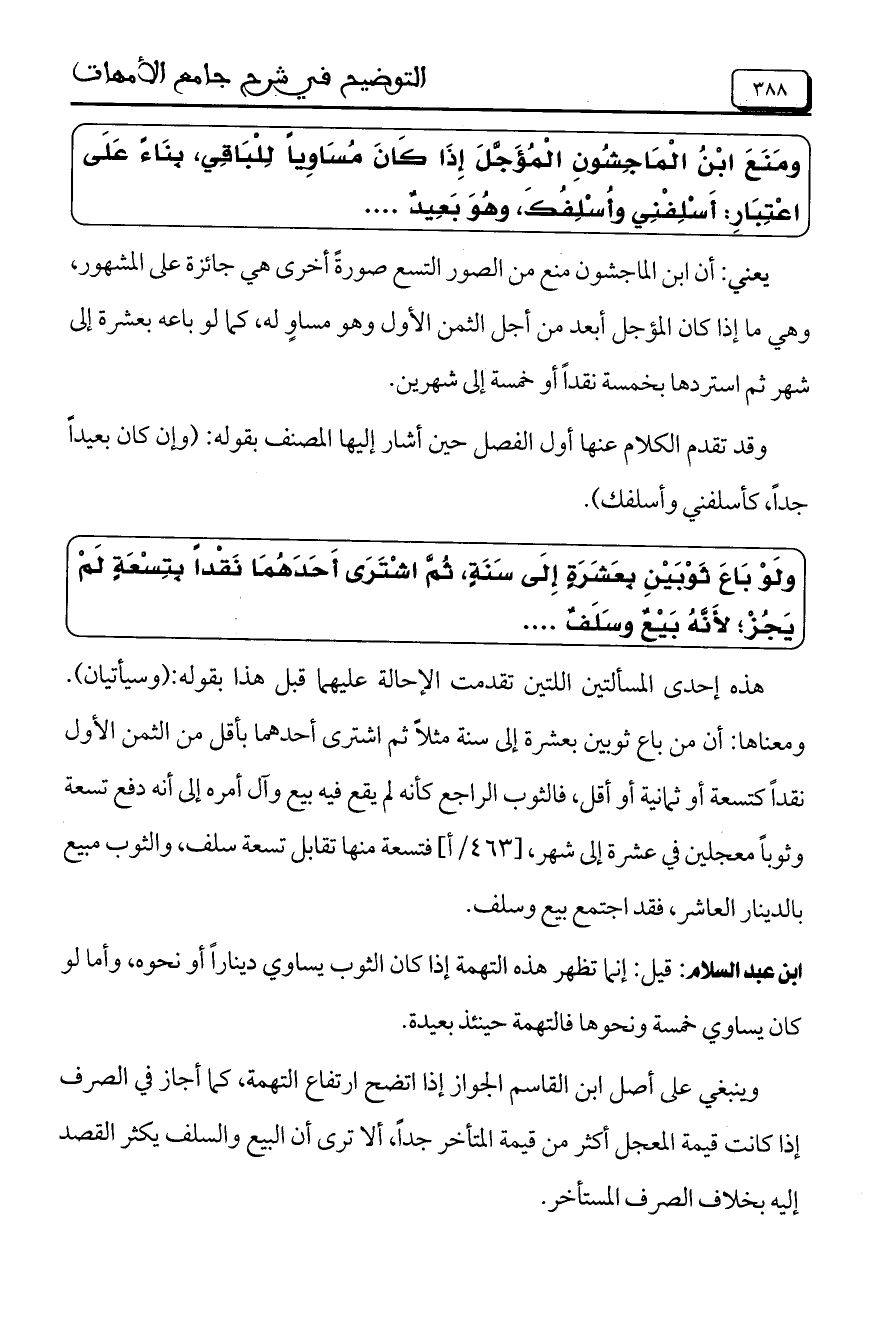 ٣٨٨
التوضيح في شرح جامع الأمهات
ومَنَعَ ابْنُ الْمَاجِشُونِ الْمُؤَجَّلَ إِذَا كَانَ مُسَاوِياً لِلْبَاقِي، بِنَاءً عَلَى
اعْتِبَارِ: أَسْلِفْنِي وأُسْلِفُكَ، وهُوَ بَعِيدٌ ....
يعني: أن ابن الماجشون منع من الصور التسع صورةً أخرى هي جائزة على المشهور،
وهي ما إذا كان المؤجل أبعد من أجل الثمن الأول وهو مساوٍ له، كما لو باعه بعشرة إلى
شهر ثم استردها بخمسة نقداً أو خمسة إلى شهرين.
وقد تقدم الكلام عنها أول الفصل حين أشار إليها المصنف بقوله: (وإن كان بعيداً
جداً، كأسلفني وأسلفك).
ولَوْ بَاعَ ثَوْبَيْنِ بِعَشَرَةٍ إِلَى سَنَةٍ، ثُمَّ اشْتَرَى أَحَدَهُمَا نَقْداً بِتِسْعَةٍ لَمْ
يَجُزْ؛ لأَنَّهُ بَيْعٌ وسَلَفٌ ....
هذه إحدى المسألتين اللتين تقدمت الإحالة عليهما قبل هذا بقوله:(وسيأتيان).
ومعناها: أن من باع ثوبين بعشرة إلى سنة مثلاً ثم اشترى أحدهما بأقل من الثمن الأول
نقداً كتسعة أو ثمانية أو أقل، فالثوب الراجع كأنه لم يقع فيه بيع وآل أمره إلى أنه دفع تسعة
وثوباً معجلين في عشرة إلى شهر، [٤٦٣/ أ] فتسعة منها تقابل تسعة سلف، والثوب مبيع
بالدينار العاشر، فقد اجتمع بيع وسلف.
ابن عبد السلام: قيل: إنما تظهر هذه التهمة إذا كان الثوب يساوي ديناراً أو نحوه، وأما لو
كان يساوي خمسة ونحوها فالتهمة حينئذ بعيدة.
وينبغي على أصل ابن القاسم الجواز إذا اتضح ارتفاع التهمة، كما أجاز في الصرف
إذا كانت قيمة المعجل أكثر من قيمة المتأخر جداً، ألا ترى أن البيع والسلف يكثر القصد
إليه بخلاف الصرف المستأخر.